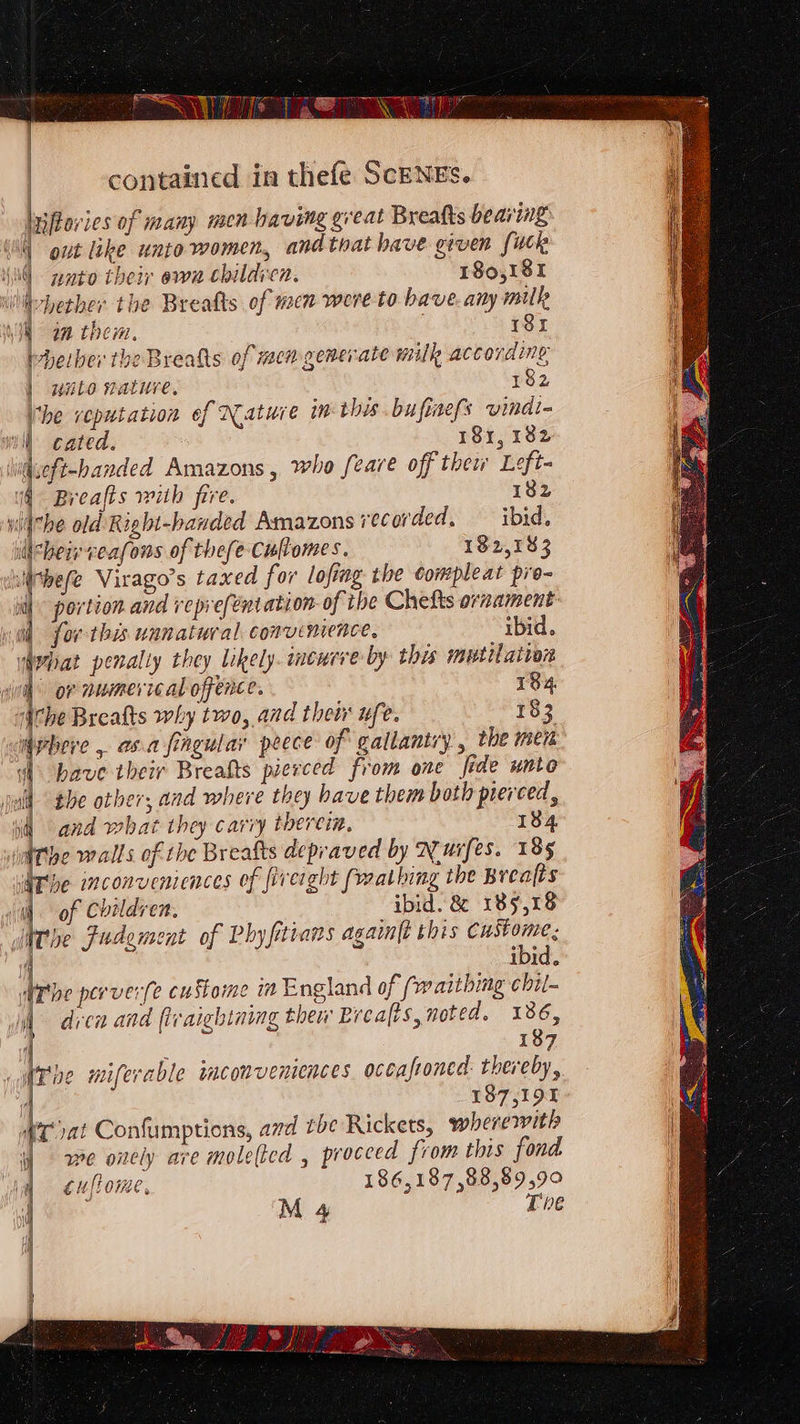 contained in theſe SCENES.
Hiſtories of many men having great Breaſts bearing
out like unto women, and that have given ſuck
unto their own children. 180,181
Whether the Breaſts of men were to have any milk
in them. 181
Whether the Breaſts of men generate milk according
unto nature. 182
The reputation of Nature in this buſineſs vindi-
cated. 181, 182
Left-handed Amazons, who ſeare off their Left-
Breaſts with fire. 182
The old Right-handed Amazons recorded. ibid.
Their reaſons of theſe Cuſtomes. 182,183
Theſe Virago's taxed for loſing the compleat pro-
portion and repreſentation of the Cheſts ornament
for this unnatural convenience. ibid.
What penalty they likely incurre by this mutilation
or numerical offence. 184
The Breaſts why two, and their uſe. 183
Where, as a ſingular peece of gallantry, the men
have their Breaſts pierced from one ſide unto
the other, and where they have them both pierced,
and what they carry therein. 184
The walls of the Breaſts depraved by Nurſes. 185
The inconveniences of ſtreight ſwathing the Breaſts
of Children. ibid. & 185,18
The Judgment of Phyſitians againſt this Cuſtome.
ibid.
The perverſe cuſtome in England of ſwaithing chil-
dren and ſtraightning their Breaſts, noted. 186,
187
The miſerable inconveniences occaſioned thereby,
187,191
That Conſumptions, and the Rickets, wherewith
we onely are moleſted, proceed from this fond
cuſtome. 186,187,88,89,90
M 4 The